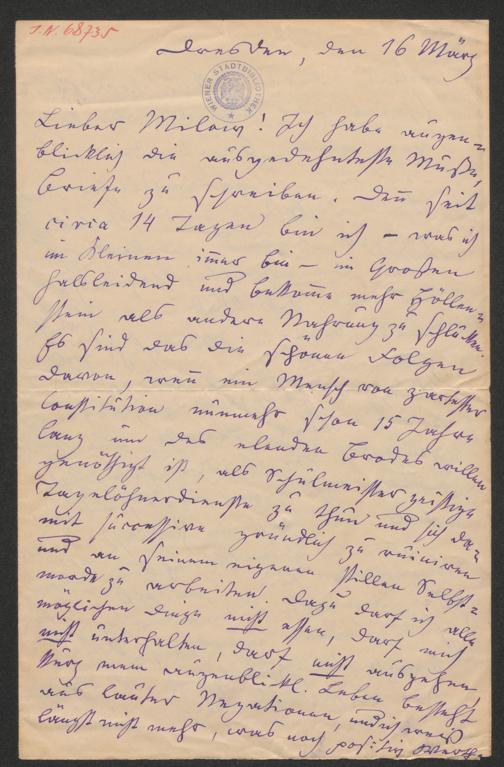 I.N. 68735
Dresden, den 16 März
WIENER STADTBIBLIOTHEK
Lieber Milow! Ich habe augen=
blicklich die ausgedehnteste Muße,
Briefe zu schreiben. Denn seit
circa 14 Tagen bin ich – was ich
im Kleinen immer bin – im Großen
halsleidend und bekomme mehr Höllen=
stein als andere Nahrung zu schlucken.
Es sind das die schönen Folgen
davon, wenn ein Mensch von zartester
Constitution nunmehr schon 15 Jahre
lang um des elenden Brodes willen
genöthigt ist, als Schulmeister geistige
Tagelöhnerdienste zu thun und sich da=
mit successive gründlich zu ruiniren
und an seinem eigenen stillen Selbst=
morde zu arbeiten. Dazu darf ich alle
möglichen Dinge nicht essen, darf mich
nicht unterhalten, darf nicht ausgehen
kurz mein augenblickl. Leben besteht
aus lauter Negationen, und ich weiß
längst nicht mehr, was noch positiv